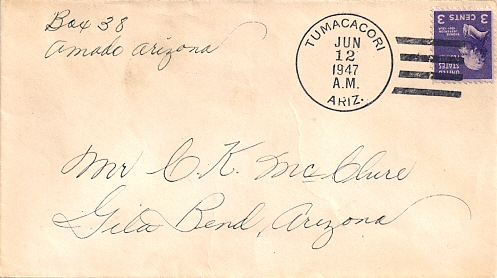 Box 38
Amado Arizona
TUMACACORI
JUN
12
1947
A.M.
ARIZ.
3 CENTS 3
UNITED
STATES
Mr C. K. McClure
Gila Bend, Arizona